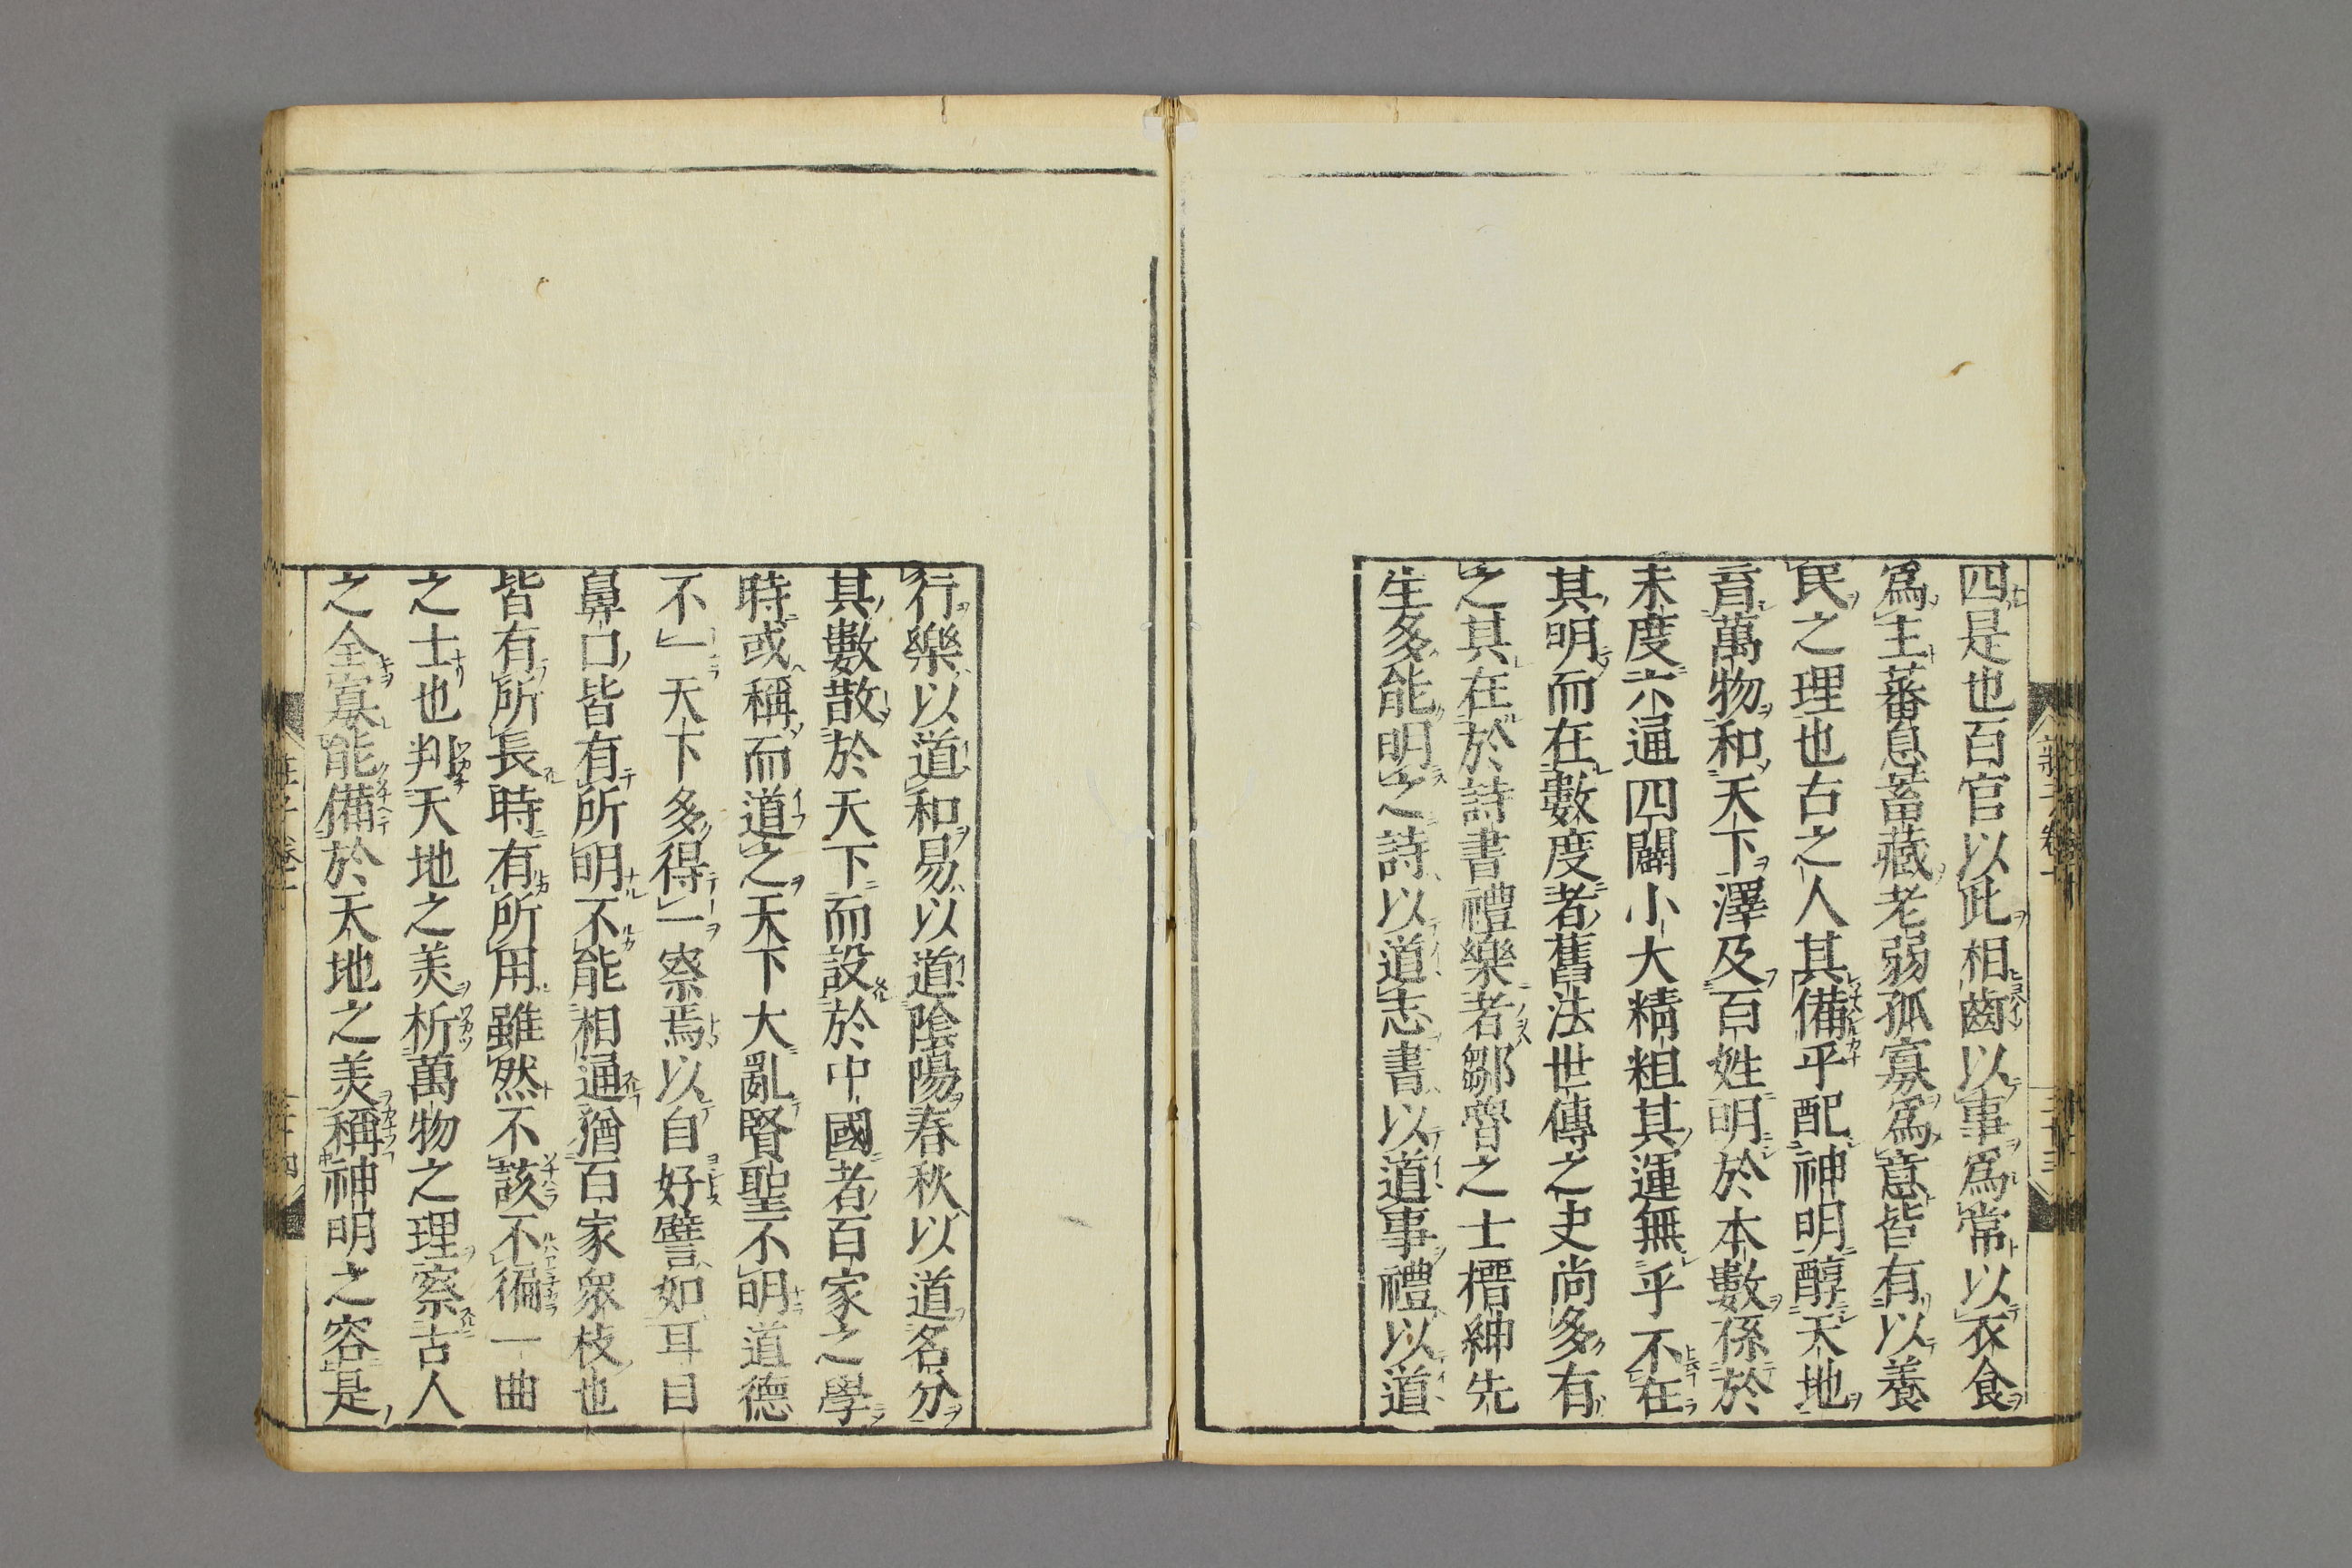 四是也百官以此相齒以事爲常以衣食
爲主蕃息蓄藏老弱孤寡爲意皆有以養
民之理也古之人其備乎配神明醇天地
育萬物和天下澤及百姓明於本數係於
末度六通四闢小大精粗其運無乎不在
其明而在數度者舊法世傳之史尚多有
之其在於詩書禮樂者鄒魯之士搢紳先
生多能明之詩以道志書以道事禮以道
行樂以道和易以道陰陽春秋以道名分
其數散於天下而設於中國者百家之學
時或稱而道之天下大亂賢聖不明道德
不一天下多得一察焉以自好譬如耳目
鼻口皆有所明不能相通猶百家衆枝也
皆有所長時有所用雖然不該不徧一曲
之士也判天地之美析萬物之理察古人
之全寡能備於天地之美稱神明之容是